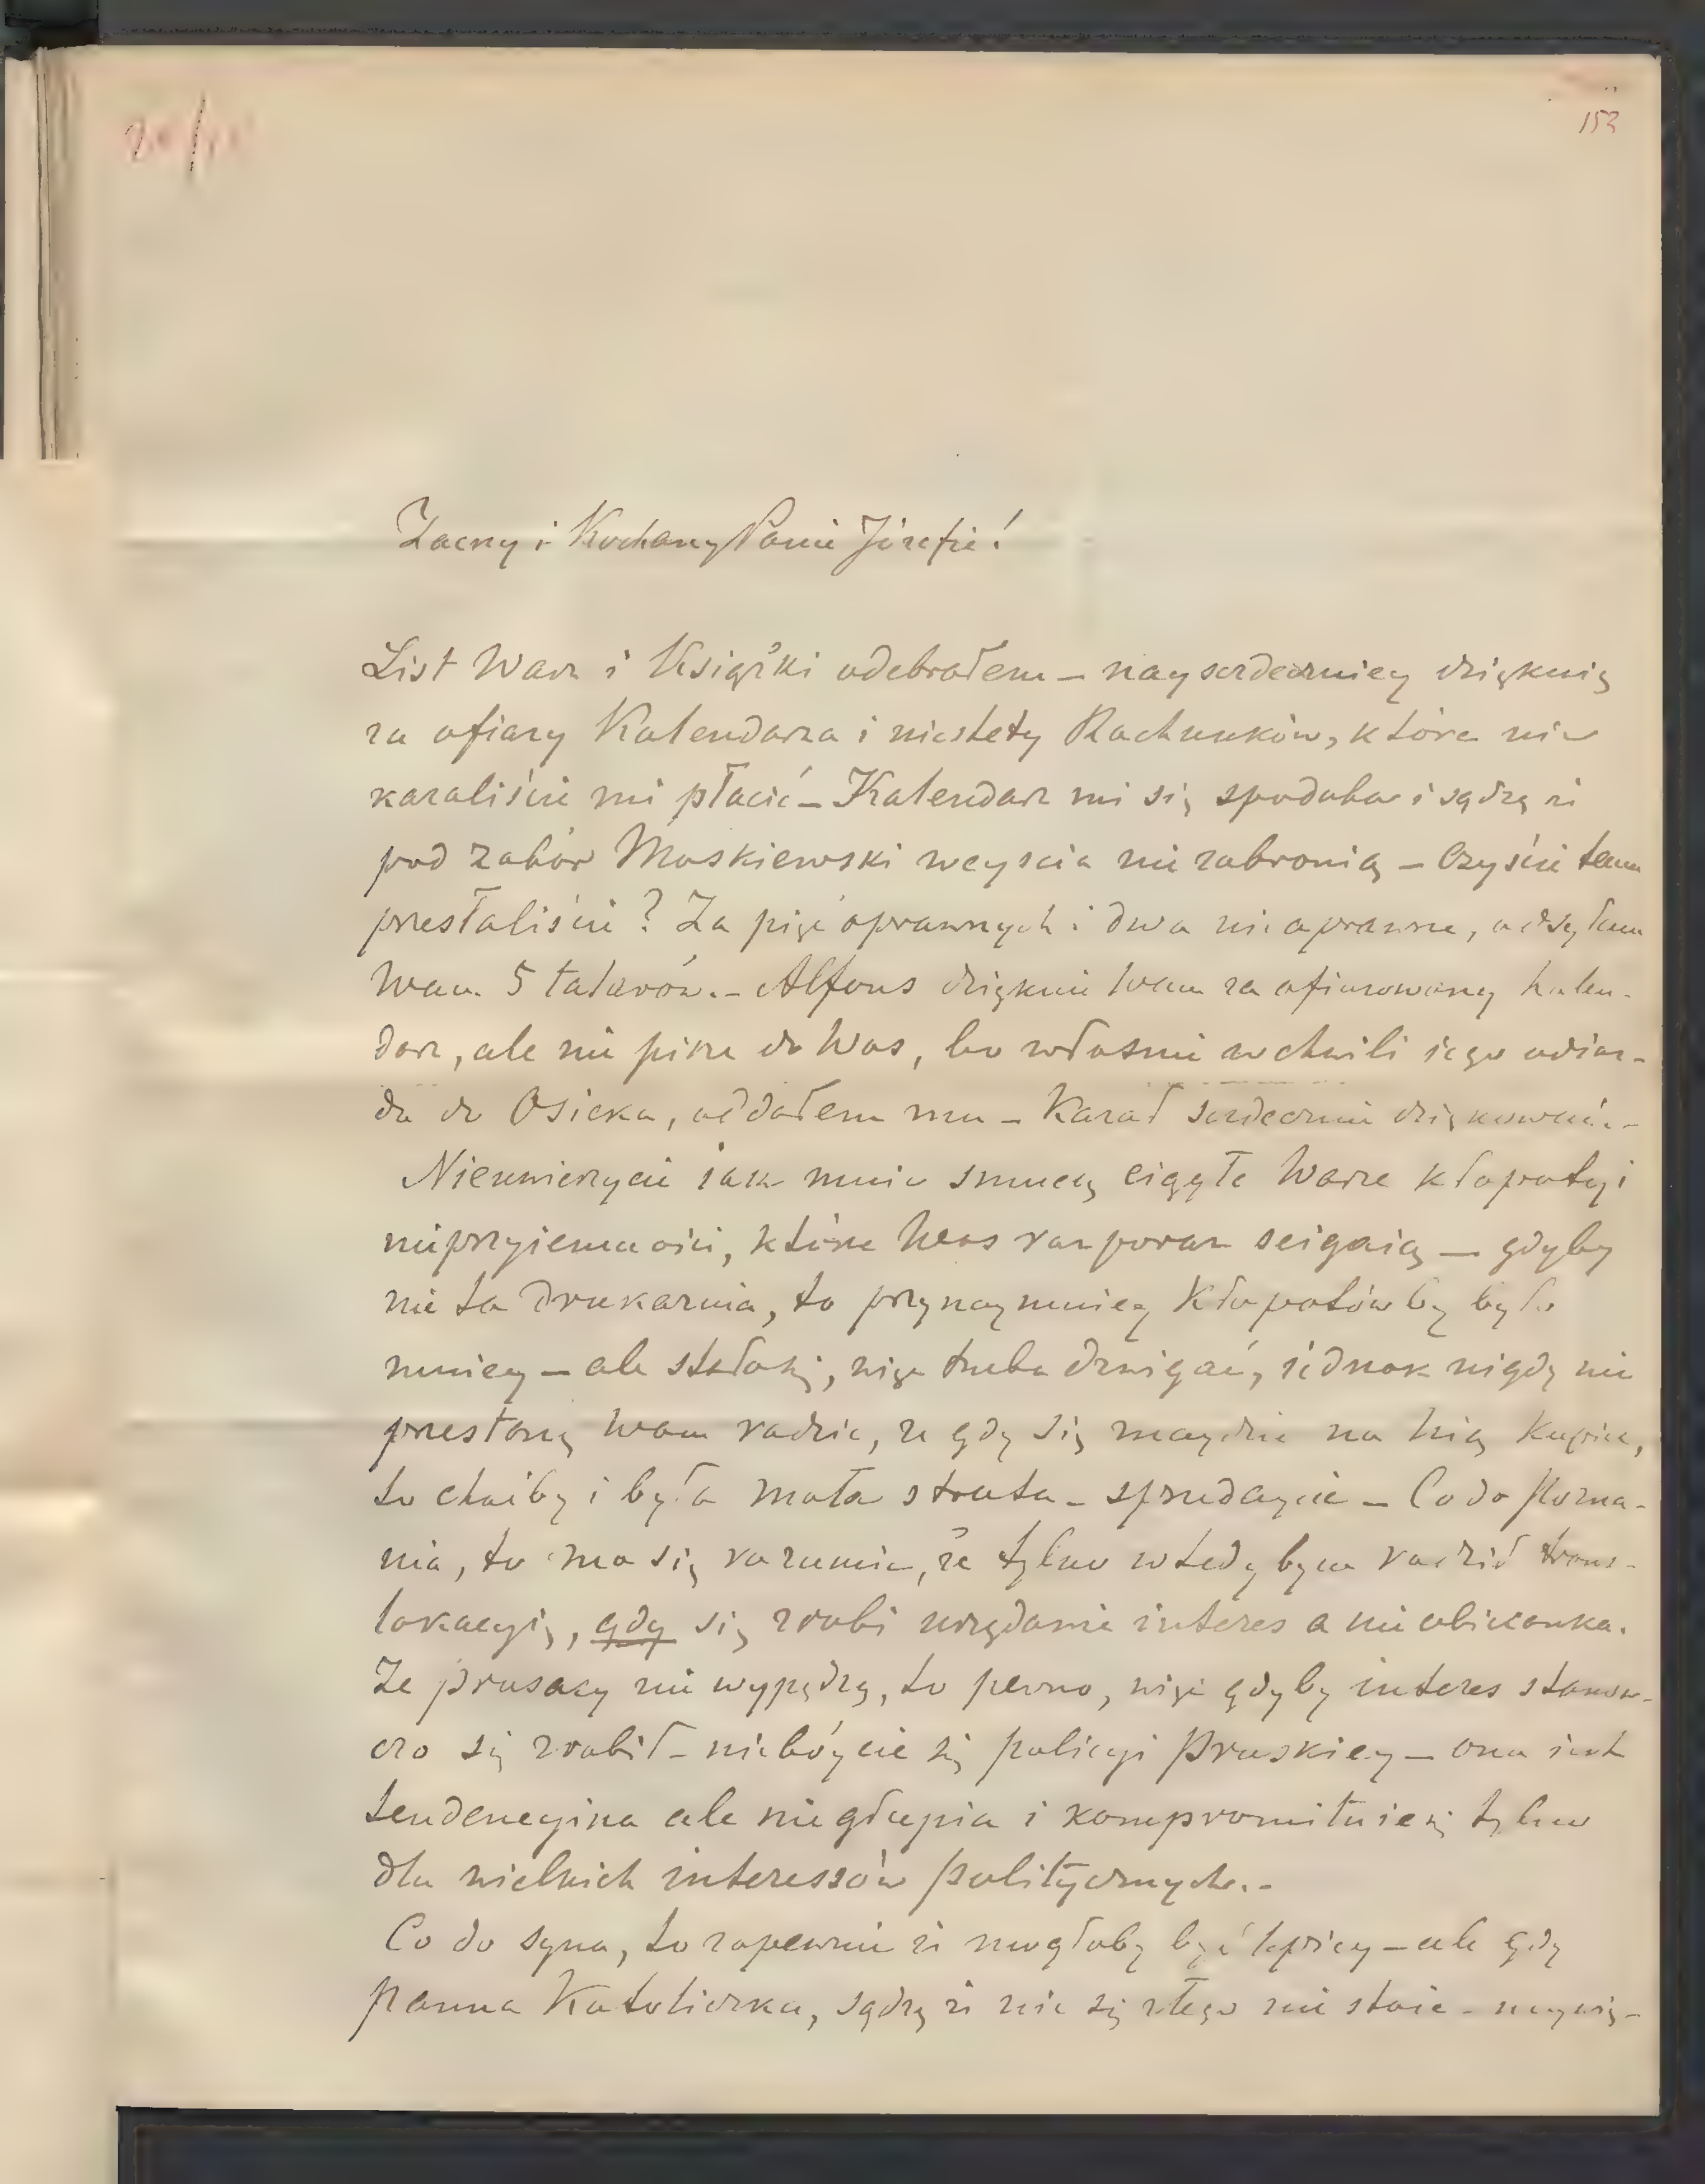 153
Zacny i Kochany Panie Józefie!
List Wasz i Książki odebrałem – nayserdeczniey dziękuię
za ofiary Kalendarza i niestety Rachunków, które nie
kazaliście mi płacić – Kalendarz mi się spodobał i sądzę że
pod zabór Moskiewski weyscia nie zabronią – Czyście tam
przesłaliście? Za pięć oprawnych i dwa nieoprawne, odsyłam
Wam 5 talarów. – Alfons dziękuie Wam za ofiarowany kalen-
darz, ale nie pisze do Was, bo własnie w chwili iego odiaz-
du do Osieka, oddałem mu – Kazał serdecznie dziękować. –
Nieuwierzycie iak mnie smucą ciągłe Wasze kłopoty i
nieprzyiemności, które Was raz poraz scigaią – gdyby
nie ta drukarnia, to przynaymniey kłopotów by było
mniey – ale stało się, więc trzeba dzwigać, iednak nigdy nie
przestanę Wam radzić, że gdy się znaydzie na nią kupiec,
to choćby i była mała strata – sprzedaycie – Co do Pozna-
nia, to ma się rozumie, że tylko wtedy bym radził trans-
lokacyię, gdy się zrobi urzędownie interes a nie obiecanka.
Że prusacy nie wypędzą, to pewno, więc gdyby interes stanow-
czo się zrobił – niebóycie się policyi Pruskiey – ona iest
tendencyina ale niegłupia i kompromituie się tylko
dla wielkich interessów politycznych. –
Co do syna, to zapewnie że mogłoby być lepiey – ale gdy
panna Katoliczka, sądzę że nic się złego nie staie – naywię-